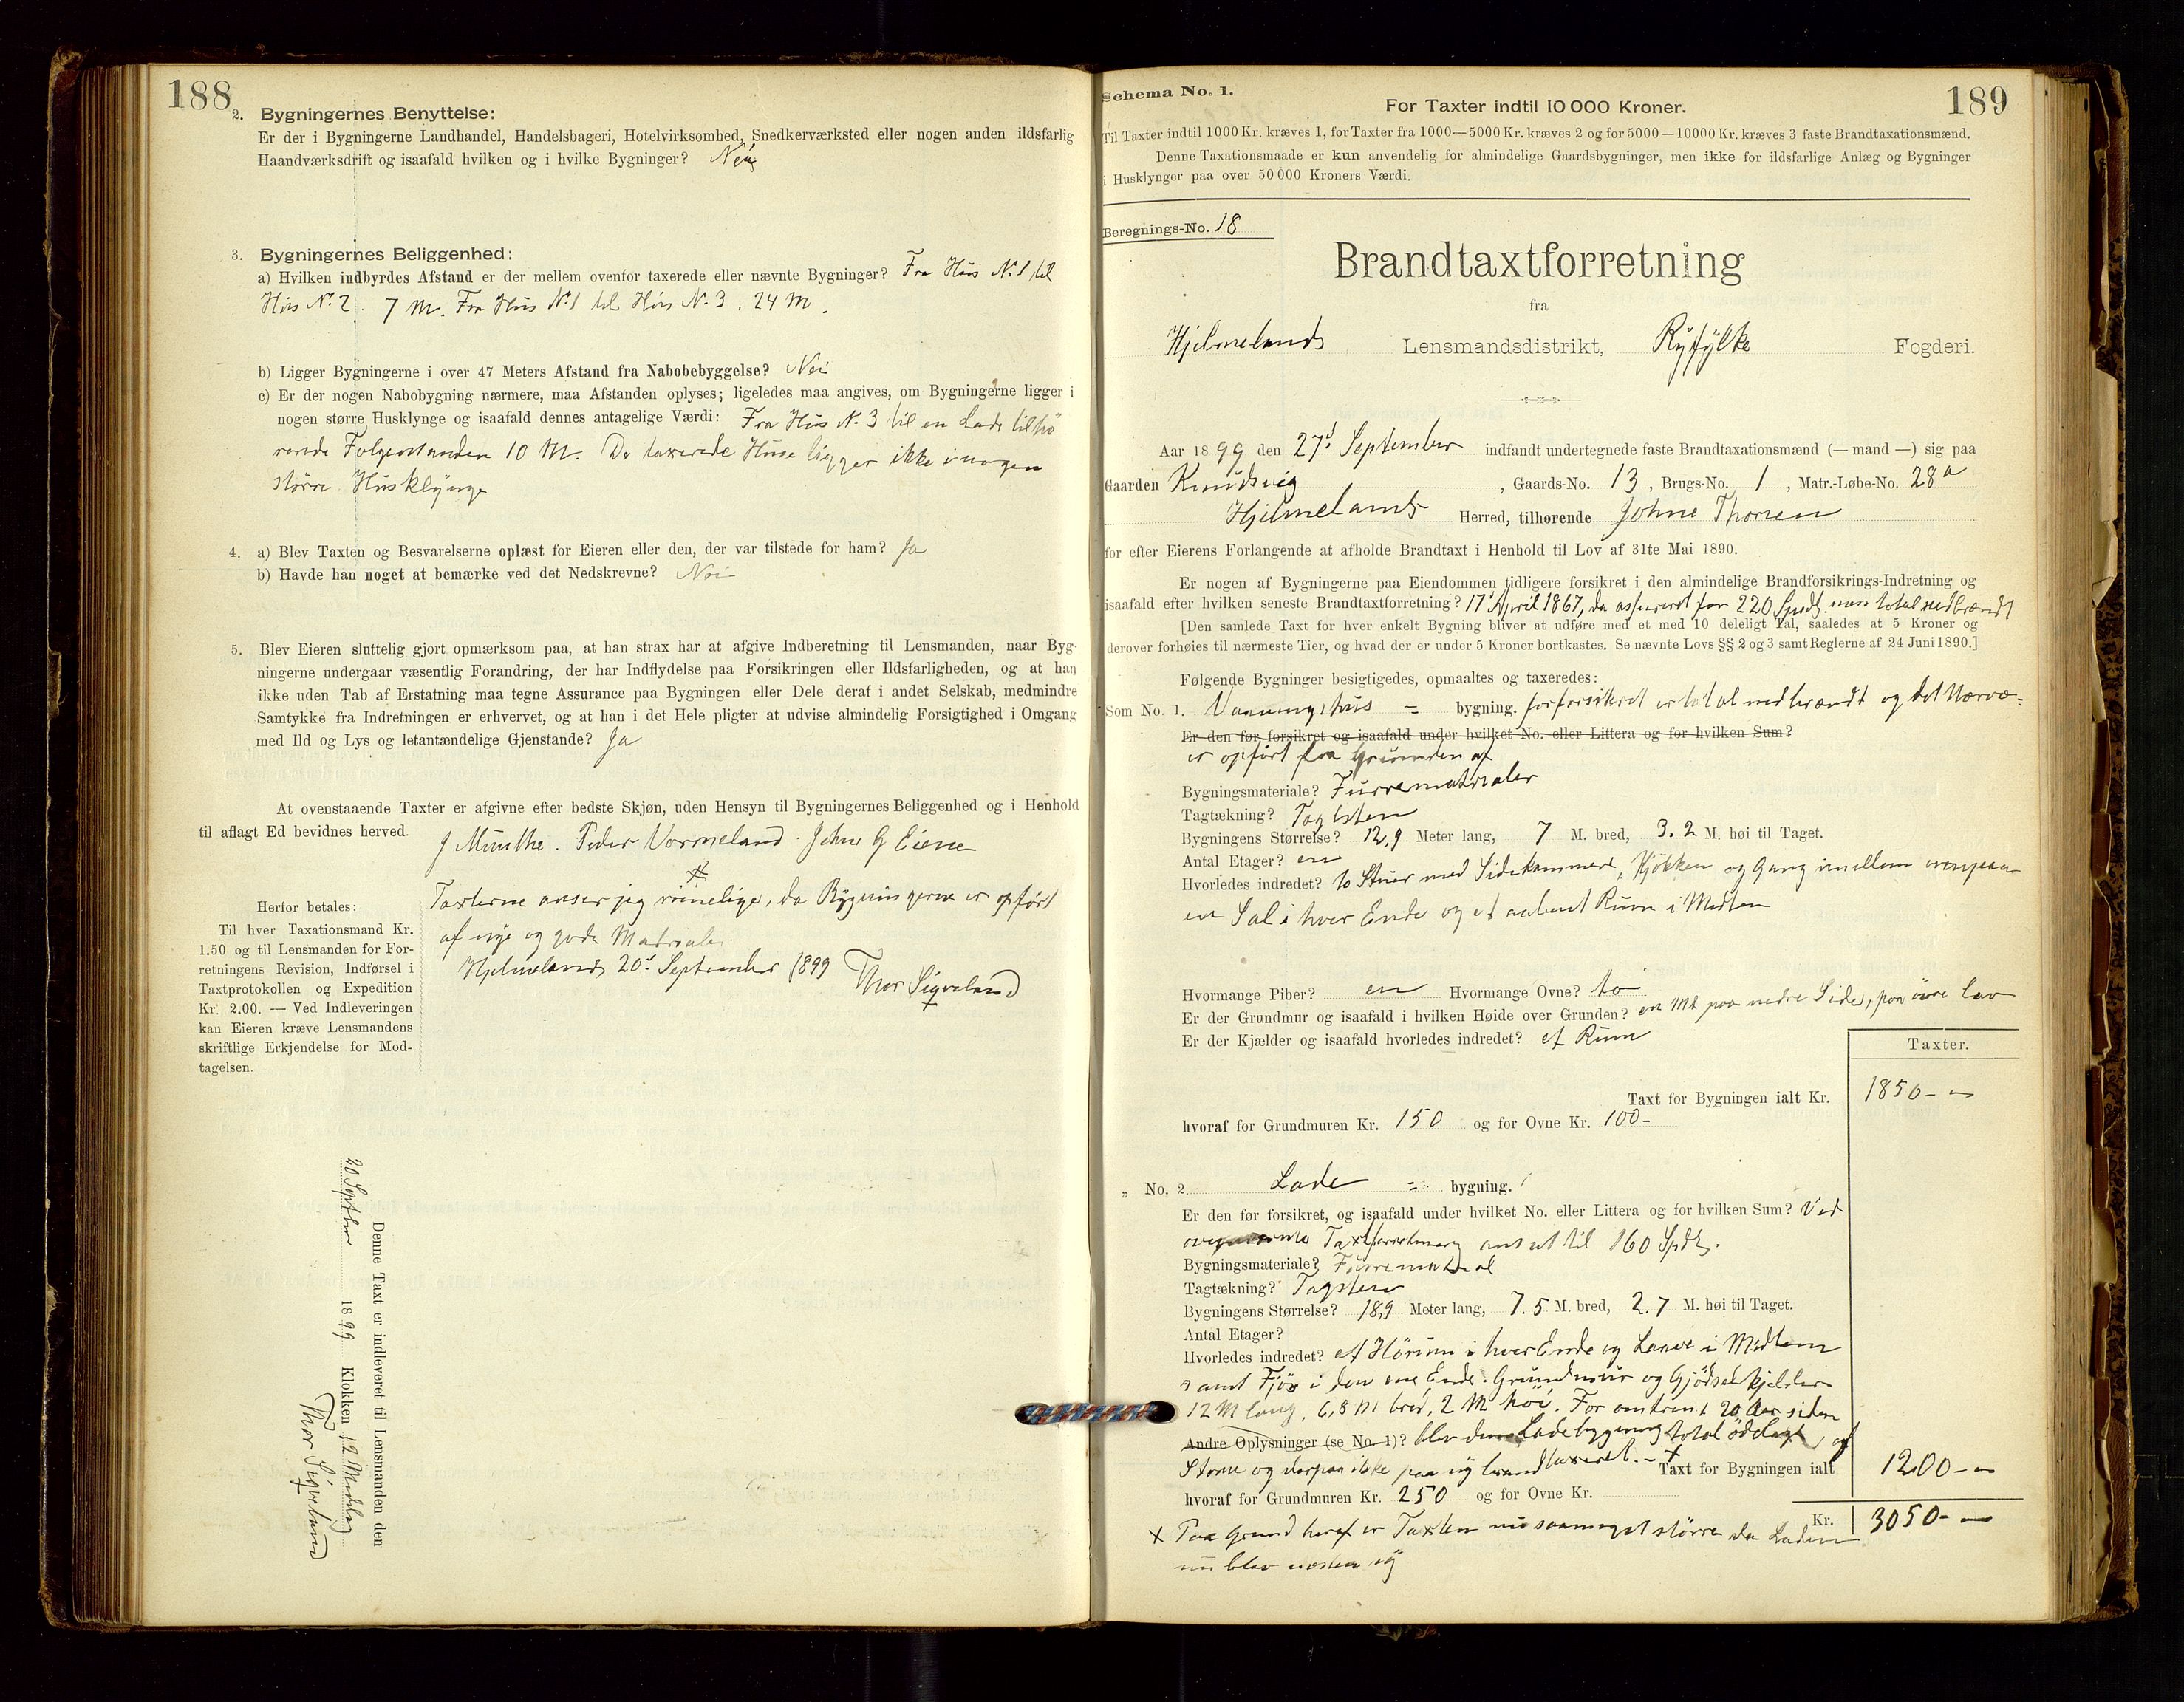 188
2. Bygningernes Benyttelse:
Er der i Bygningerne Landhandel, Handelsbageri, Hotelvirksomhed, Snedkerværksted eller nogen anden ildsfarlig
Haandværksdrift og isaafald hvilken og i hvilke Bygninger? Nei
3. Bygningernes Beliggenhed:
a) Hvilken indbyrdes Afstand er der mellem ovenfor taxerede eller nævnte Bygninger? Fra Hus No 1 til
Hus No 2. 7 M. Fra Hus No 1 til Hus No 3. 24 M.
b) Ligger Bygningerne i over 47 Meters Afstand fra Nabobebyggelse? Nei
c) Er der nogen Nabobygning nærmere, maa Afstanden oplyses; ligeledes maa angives, om Bygningerne ligger i
nogen større Husklynge og isaafald dennes antagelige Værdi: Fra Hus No 3 til en Lade tilhø
rende Folgemanden 10 M. De taxerede Huse ligger ikke i nogen
større Husklynge
4. a) Blev Taxten og Besvarelserne oplæst for Eieren eller den, der var tilstede for ham? Ja
b) Havde han noget at bemærke ved det Nedskrevne? Nei
5. Blev Eieren sluttelig gjort opmærksom paa, at han strax har at afgive Indberetning til Lensmanden, naar Byg-
ningerne undergaar væsentlig Forandring, der har Indflydelse paa Forsikringen eller Ildsfarligheden, og at han
ikke uden Tab af Erstatning maa tegne Assurance paa Bygningen eller Dele deraf i andet Selskab, medmindre
Samtykke fra Indretningen er erhvervet, og at han i det Hele pligter at udvise almindelig Forsigtighed i Omgang
med Ild og Lys og letantændelige Gjenstande? Ja
At ovenstaaende Taxter er afgivne efter bedste Skjøn, uden Hensyn til Bygningernes Beliggenhed og i Henhold
til aflagt Ed bevidnes herved.
J Munthe. Peder Vormeland. Johne G Eiene
Taxterne anser jeg rimelige, da Bygningerne er opført
af nye og gode Materialer.
Hjelmeland 20d September 1899 Thor Sigveland
Herfor betales:
Til hver Taxationsmand Kr.
1.50 og til Lensmanden for For-
retningens Revision, Indførsel i
Taxtprotokollen og Expedition
Kr. 2.00. — Ved Indleveringen
kan Eieren kræve Lensmandens
skriftlige Erkjendelse for Mod-
tagelsen.
Denne Taxt er indleveret til Lensmanden den
20 Septber 1899 Klokken 12 Middag
Thor Sigveland
189
Schema No. 1.
For Taxter indtil 10 000 Kroner.
Til Taxter indtil 1000 Kr. kræves 1, for Taxter fra 1000—5000 Kr. kræves 2 og for 5000—10000 Kr. kræves 3 faste Brandtaxationsmænd.
Denne Taxationsmaade er kun anvendelig for almindelige Gaardsbygninger, men ikke for ildsfarlige Anlæg og Bygninger
i Husklynger paa over 50 000 Kroners Værdi.
Beregnings-No. 18
Brandtaxtforretning
fra
Hjelmelands Lensmandsdistrikt, Ryfylke Fogderi.
Aar 1899 den 27d September indfandt undertegnede faste Brandtaxationsmænd (— mand —) sig paa
Gaarden Knudsvig, Gaards-No. 13, Brugs-No. 1, Matr.-Løbe-No. 28a
Hjelmelands Herred, tilhørende Johne Thorsen
for efter Eierens Forlangende at afholde Brandtaxt i Henhold til Lov af 31te Mai 1890.
Er nogen af Bygningerne paa Eiendommen tidligere forsikret i den almindelige Brandforsikrings-Indretning og
isaafald efter hvilken seneste Brandtaxtforretning? 17d April 1867, da assureret for 220 Spd men total nedbrændt
[Den samlede Taxt for hver enkelt Bygning bliver at udføre med et med 10 deleligt Tal, saaledes at 5 Kroner og
derover forhøies til nærmeste Tier, og hvad der er under 5 Kroner bortkastes. Se nævnte Lovs §§ 2 og 3 samt Reglerne af 24 Juni 1890.]
Følgende Bygninger besigtigedes, opmaaltes og taxeredes:
Som No. 1. Vaaningshus = bygning. forsikret er total nedbrændt og det Nærvæ=
Er den før forsikret og isaafald under hvilket No. eller Littera og for hvilken Sum?
er opført paa Grunden af
Bygningsmateriale? Furrematerialer
Tagtækning? Tagsten
Bygningens Størrelse? 12,9 Meter lang, 7 M. bred, 3.2 M. høi til Taget.
Antal Etager? en
Hvorledes indredet? to Stuer med Sidekammers, Kjøkken og Gang imellem ovenpaa
en Sal i hver Ende og et aabent Rum i Midten
Hvormange Piber? en Hvormange Ovne? to
Er der Grundmur og isaafald i hvilken Høide over Grunden? en Mt paa nedre Side, paa øvre lav
Er der Kjælder og isaafald hvorledes indredet? et Rum
Taxter.
Taxt for Bygningen ialt Kr. 1850 - -
hvoraf for Grundmuren Kr. 150 og for Ovne Kr. 100-
" No. 2 Lade = bygning.
Er den før forsikret, og isaafald under hvilket No. eller Littera og for hvilken Sum? Ved
Taxtforretning ansat til 160 Spd.
Bygningsmateriale? Furremateriel
Tagtækning? Tagsten
Bygningens Størrelse? 18,9 Meter lang, 7.5 M. bred, 2.7 M. høi til Taget.
Antal Etager?
Hvorledes indredet? et Hørum i hver Ende og Laave i Midten
samt Fjøs i den ene Ende. Grundmur og Gjødselkjelder
12 M lang, 6,8 M bred, 2 M høi. For omtrent 20 Aar siden
Andre Oplysninger (se No. 1)? blev denne Ladebygning total ødelagt af
Storm og derpaa ikke paa ny brandtaxeret. - x Taxt for Bygningen ialt 1200 - -
hvoraf for Grundmuren Kr. 250 og for Ovne Kr.
Kr. 3050 - -
x Paa Grund heraf er Taxten nu saameget større da Laden
nu blev næsten ny